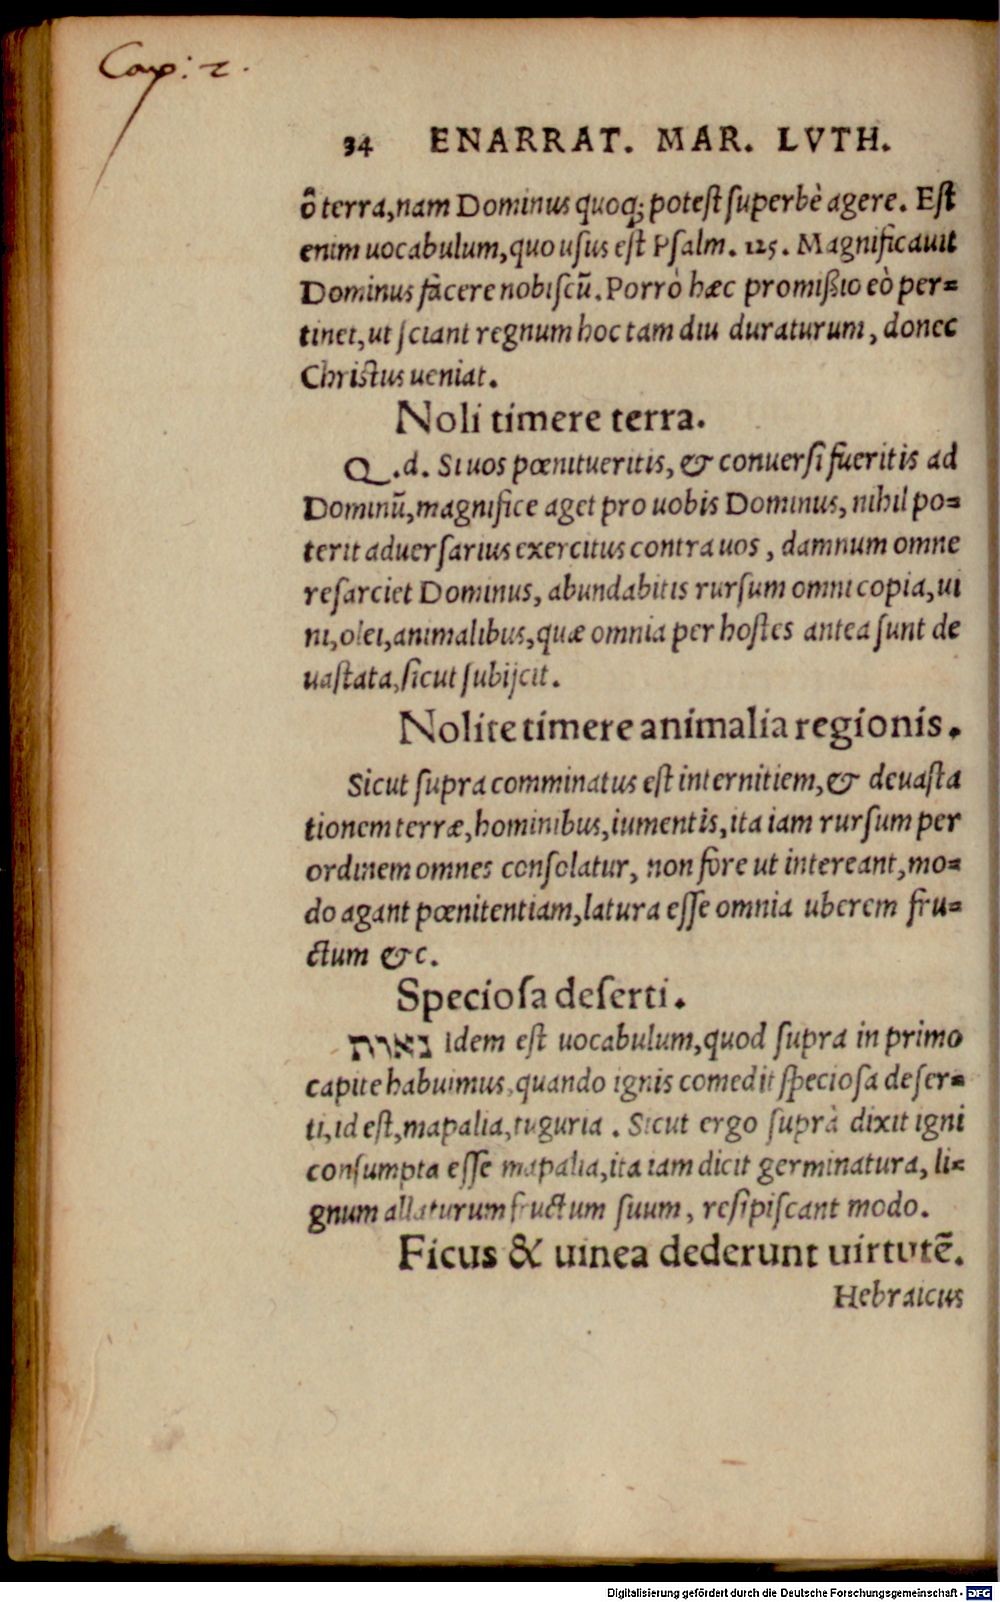 Cap: 2.
34 ENARRAT. MAR. LVTH.
ô terra, nam Dominus quoq; potest superbè agere. Est
enim uocabulum, quo usus est Psalm. 125. Magnificauit
Dominus facere nobiscū. Porrò hæc promißio eò per=
tinet, ut sciant regnum hoc tam diu duraturum, donec
Christus ueniat.
Noli timere terra.
Q.d. Si uos pœnitueritis, & conuersi fueritis ad
Dominū, magnifice aget pro uobis Dominus, nihil po=
terit aduersarius exercitus contra uos, damnum omne
resarciet Dominus, abundabitis rursum omni copia, ui
ni, olei, animalibus, quæ omnia per hostes antea sunt de
uastata, sicut subijcit.
Nolite timere animalia regionis.
Sicut supra comminatus est internitiem, & deuasta
tionem terræ, hominibus, iumentis, ita iam rursum per
ordinem omnes consolatur, non fore ut intereant, mo=
do agant pœnitentiam, latura esse omnia uberem fru=
ctum &c.
Speciosa deserti.
נאות Idem est uocabulum, quod supra in primo
capite habuimus, quando ignis comedit speciosa deser=
ti, id est, mapalia, tuguria. Sicut ergo suprà dixit igni
consumpta esse mapalia, ita iam dicit germinatura, li=
gnum allaturum fructum suum, resipiscant modo.
Ficus & uinea dederunt uirtutē.
Hebraicus
Digitalisierung gefördert durch die Deutsche Forschungsgemeinschaft - DFG